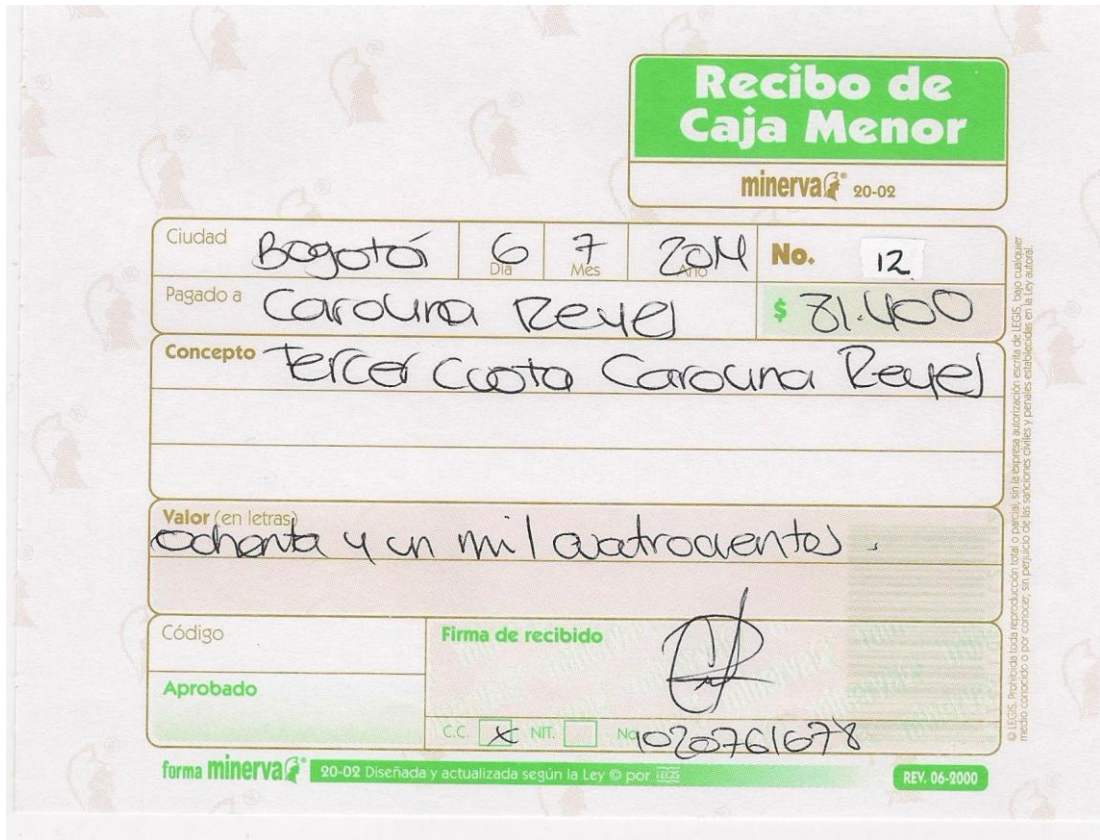 Recibo de
Caja Menor
minerva 20-02
Ciudad Bogotá 6 Día 7 Mes 2014 Año No. 12
Pagado a Carolina Reyes $ 81.400
Concepto tercer cuota Carolina Reyes
Valor (en letras)
ochenta y un mil cuatrocientos.
Código
Firma de recibido
Aprobado
C.C. X NIT. No 1020761678
forma minerva 20-02 Diseñada y actualizada según la Ley © por LEGIS
REV. 06-2000
© LEGIS. Prohibida toda reproducción total o parcial, sin la expresa autorización escrita de LEGIS, bajo cualquier
medio conocido o por conocer, sin perjuicio de las sanciones civiles y penales establecidas en la Ley autoral.